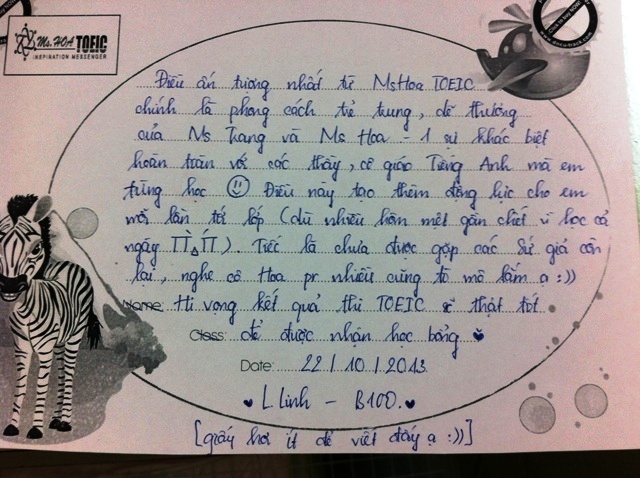 Ms. HOA TOEIC
INSPIRATION MESSENGER
Điều ấn tượng nhất từ Ms Hoa TOEIC
chính là phong cách trẻ trung, dễ thương
của Ms Trang và Ms Hoa - 1 sự khác biệt
hoàn toàn với các thầy, cô giáo Tiếng Anh mà em
từng học Điều này tạo thêm động lực cho em
mỗi lần tới lớp (dù nhiều hôm mệt gần chết vì học cả
ngày ). Tiếc là chưa được gặp các Sứ giả còn
lại, nghe cô Hoa pr nhiều cũng tò mò lắm ạ :))
Name: Hi vọng kết quả thi TOEIC sẽ thật tốt
Class: để được nhận học bổng
Date: 22 / 10 / 2013
L Linh - B100.
[giấy hơi ít để viết đấy ạ :))]